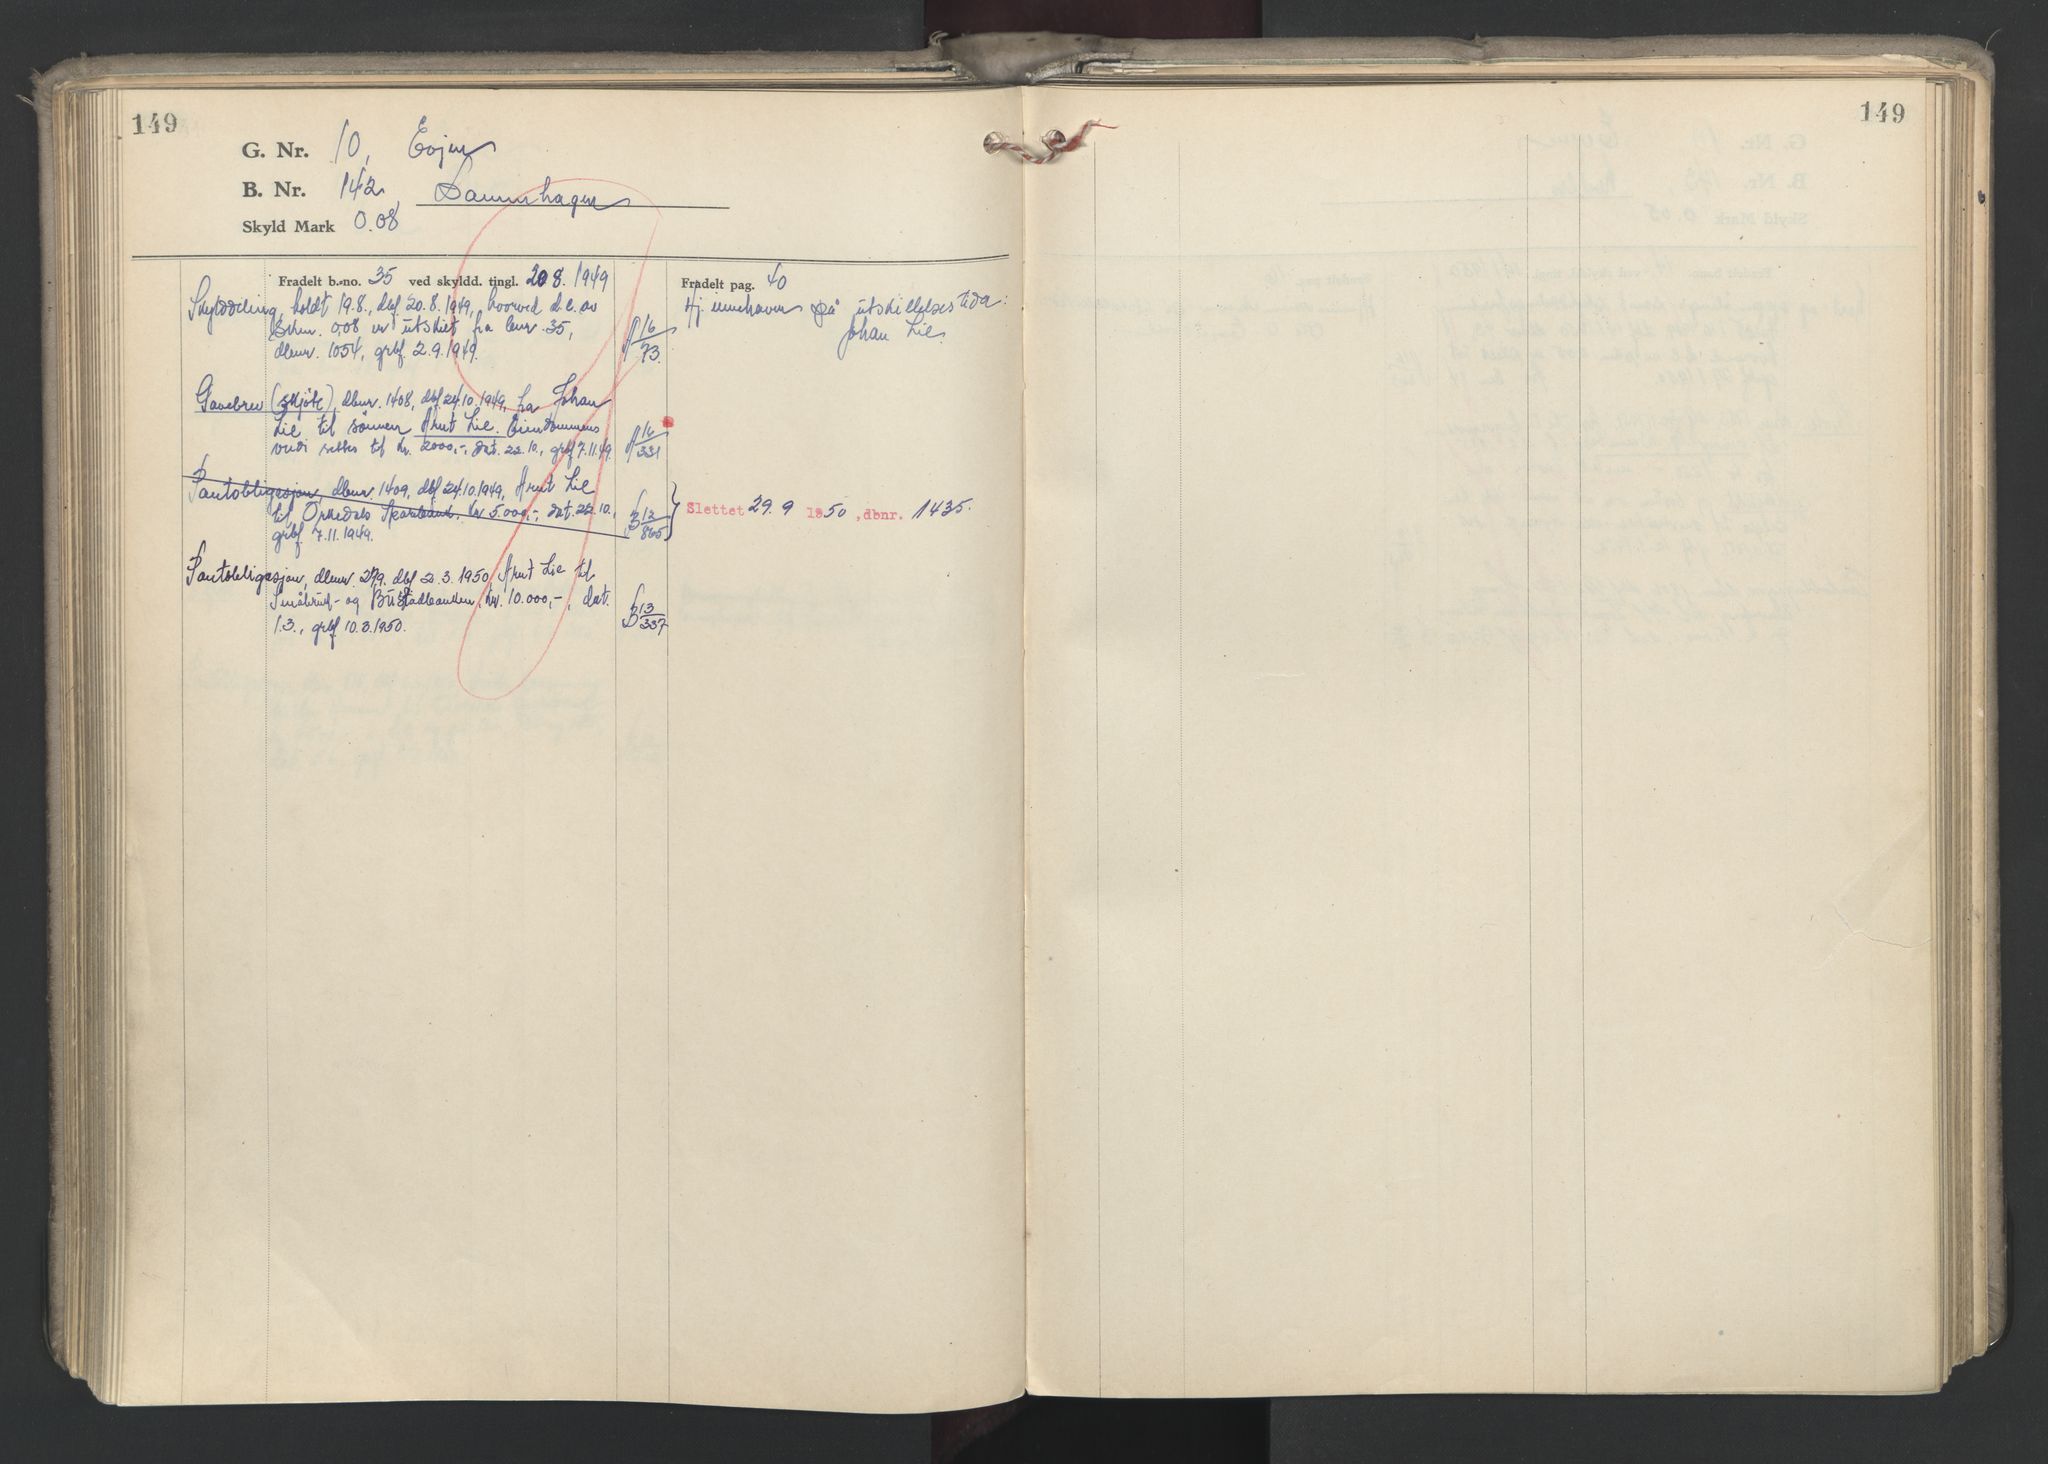 149
G. Nr. 10, Evjen
B. Nr. 142,
Skyld Mark 0.08
Fradelt b.-no. 35 ved skyldd. tingl. 20 8. 1949
Skylddeling, holdt 19.8., dbf. 20.8.1949, hvorved d.e. av
0.08 er utskilt fra bnr. 35,
dbnr. 1054, grbf. 2.9.1949.
A 16/73
Gavebrev (skjöte), dbnr. 1408, dbf. 24.10.1949, fra Johan
Lie til sönnen Arnt Lie. Eiendommens
verdi settes til kr. 2000,-, dat. 22.10., grbf. 7.11.49.
A 16/331
Pantobligasjon, dbnr. 1409, dbf. 24.10.1949, Arnt Lie
til Orkedals Sparebank, kr. 5.000,-, dat. 22.10.,
grbf. 7.11.1949.
B 12/865
Pantobligasjon, dbnr. 279. dbf. 2.3.1950, Arnt Lie til
Småbruk- og Bustadbanken, kr. 10.000,-, dat.
1.3., grbf. 10.3.1950.
B 13/337
Fradelt pag. 40
Hj. innehaver på utskillelsestida:
Johan Lie.
Slettet 29. 9 1950, dbnr. 1435.
149